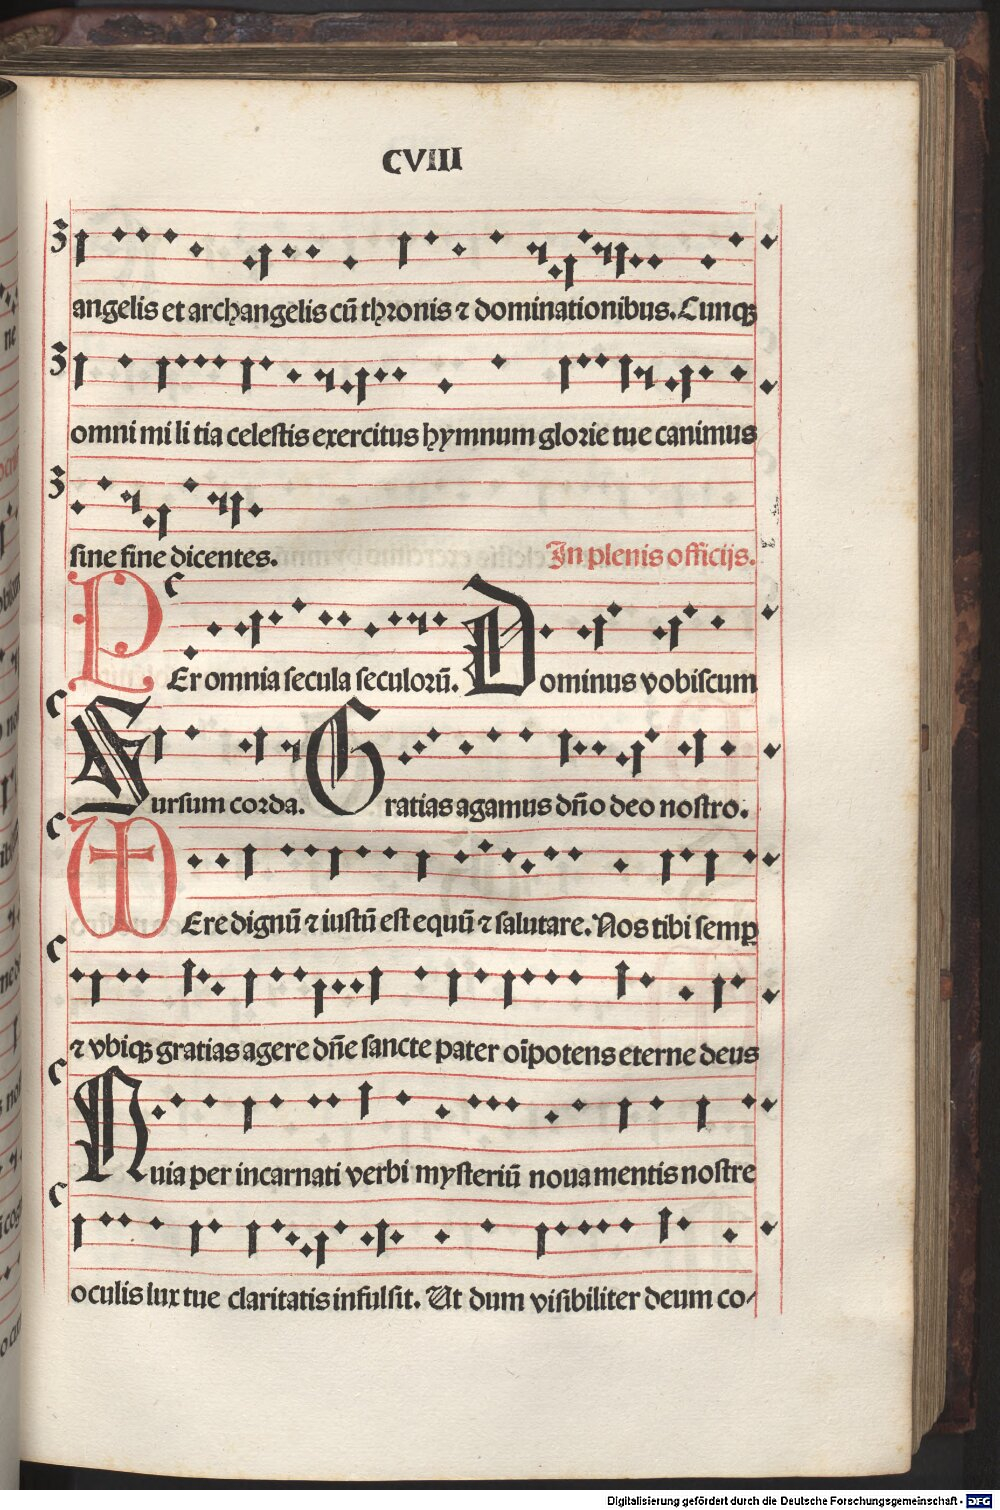 CVIII
angelis et archangelis cū thronis ⁊ dominationibus. Cunqꝫ
omni mi li tia celestis exercitus hymnum glorie tue canimus
sine fine dicentes. In plenis officijs.
PEr omnia secula seculorū. Dominus vobiscum
Sursum corda. Gratias agamus dn̄o deo nostro.
VEre dignū ⁊ iustū est equū ⁊ salutare. Nos tibi semꝑ
⁊ vbiqꝫ gratias agere dn̄e sancte pater oīpotens eterne deus
Nuia per incarnati verbi mysteriū noua mentis nostre
oculis lux tue claritatis infulsit. Ut dum visibiliter deum co-
Digitalisierung gefördert durch die Deutsche Forschungsgemeinschaft - DFG